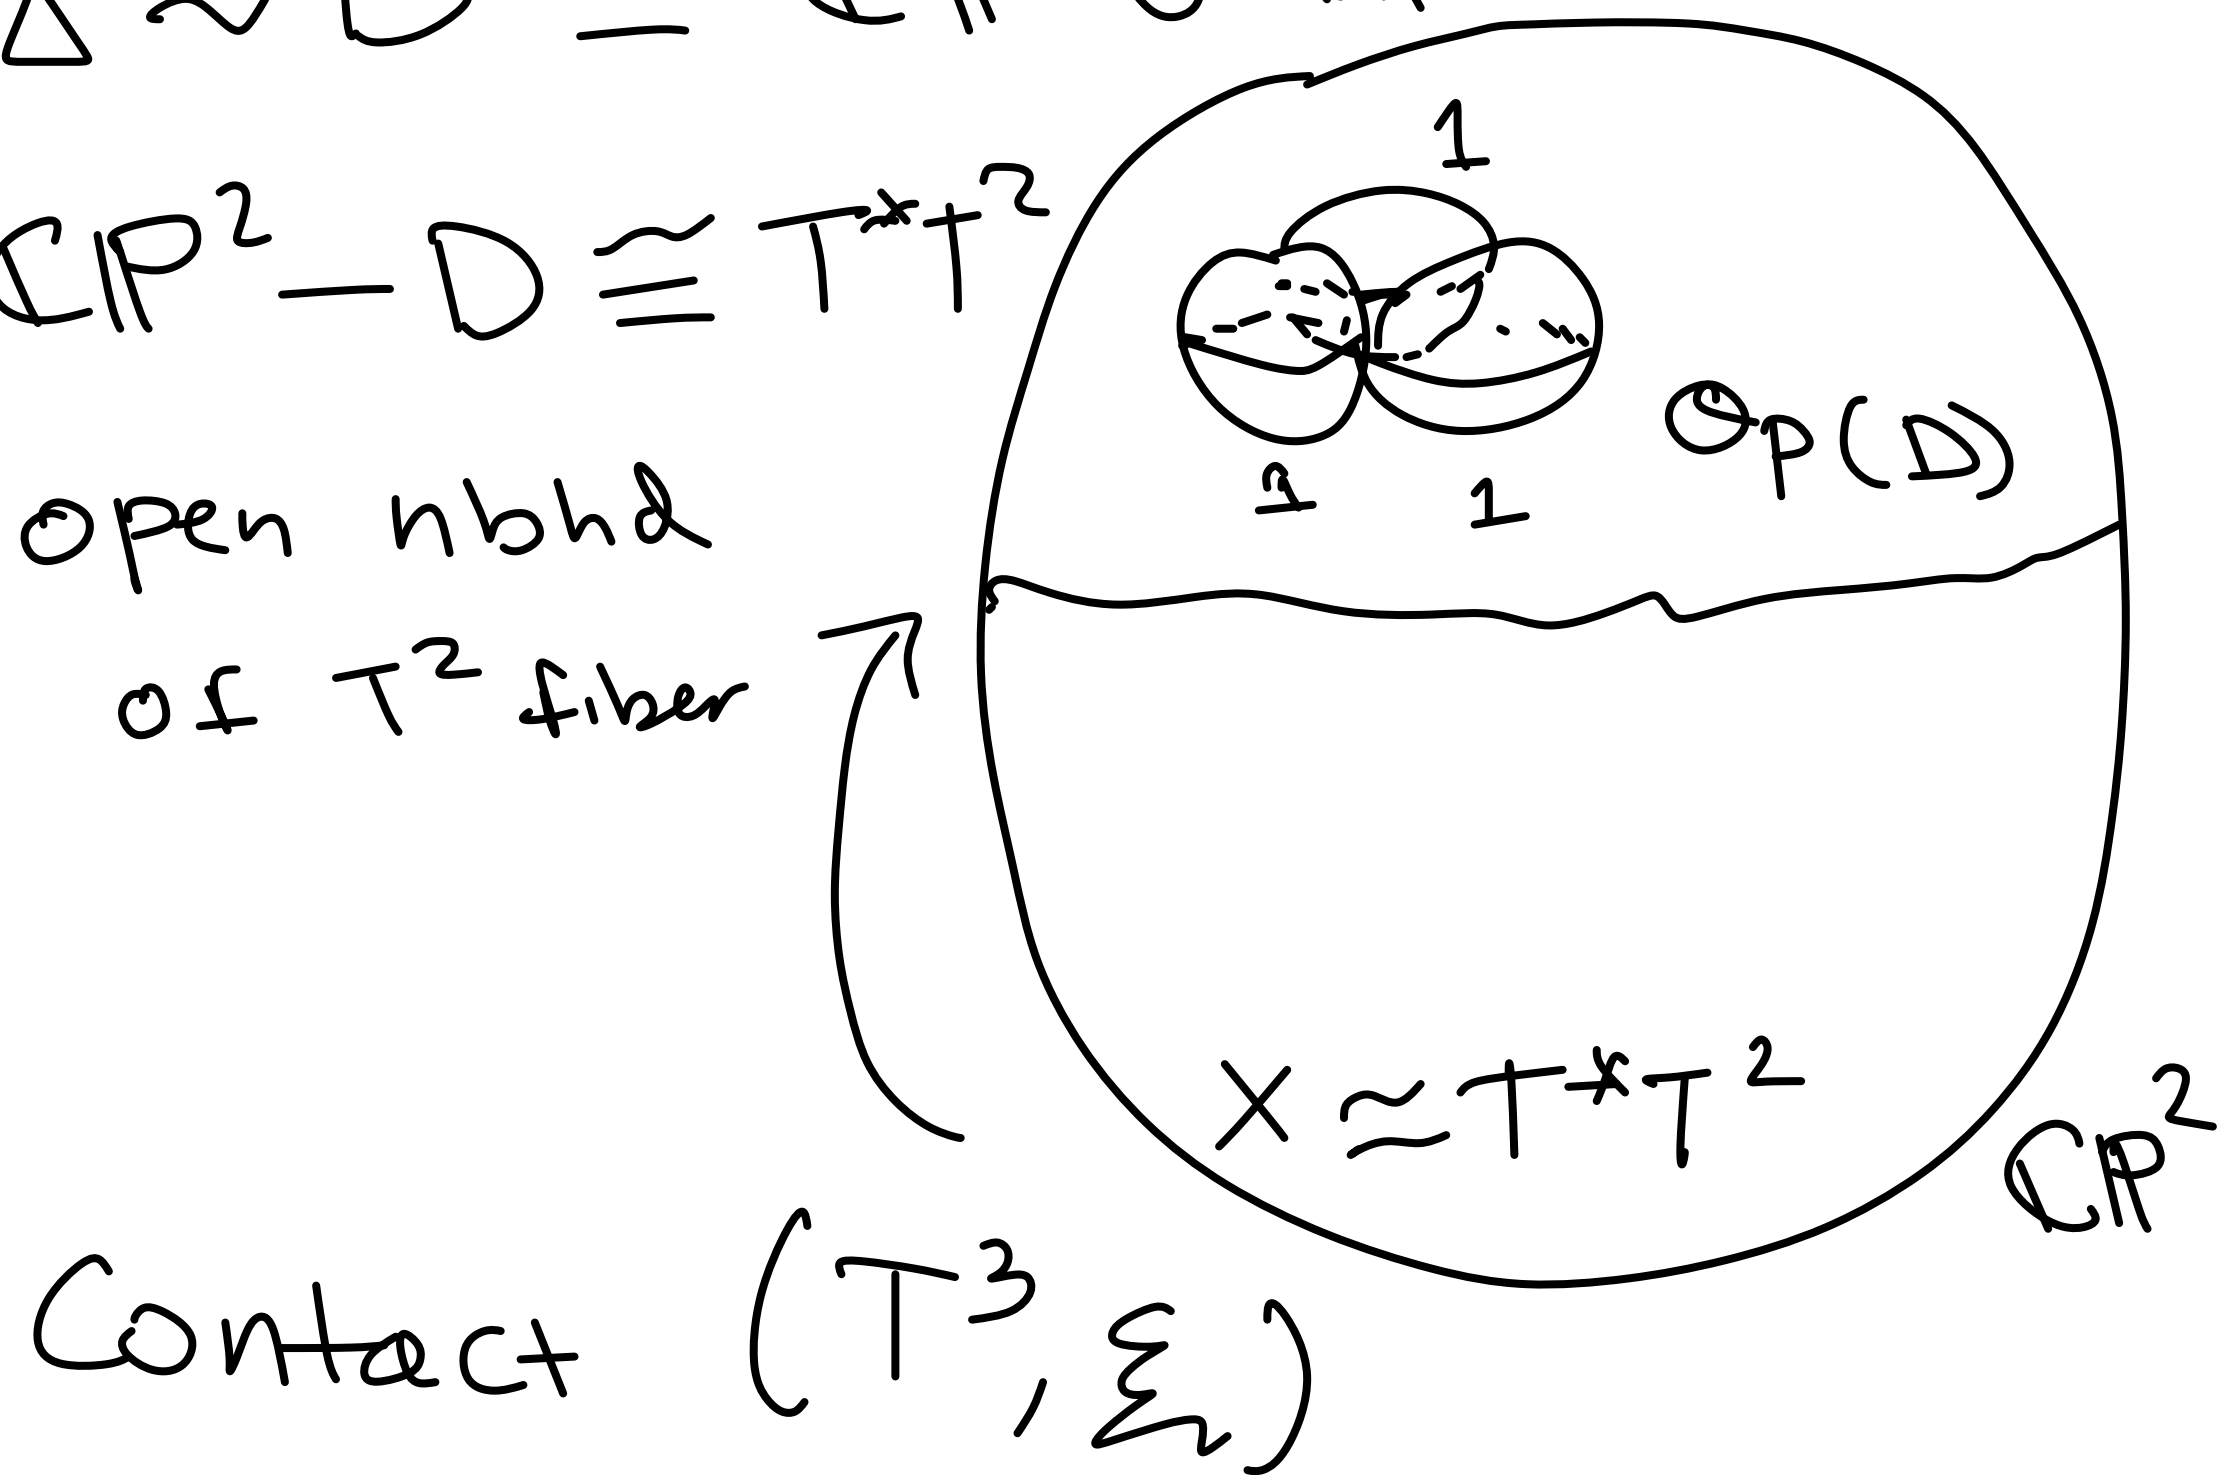 Δ ~ D
ℂℙ² — D ≅ T*T²
open nbhd
of T² fiber
1
1 1
Op(D)
X ≈ T*T²
ℂℙ²
Contact (T³, ξ)